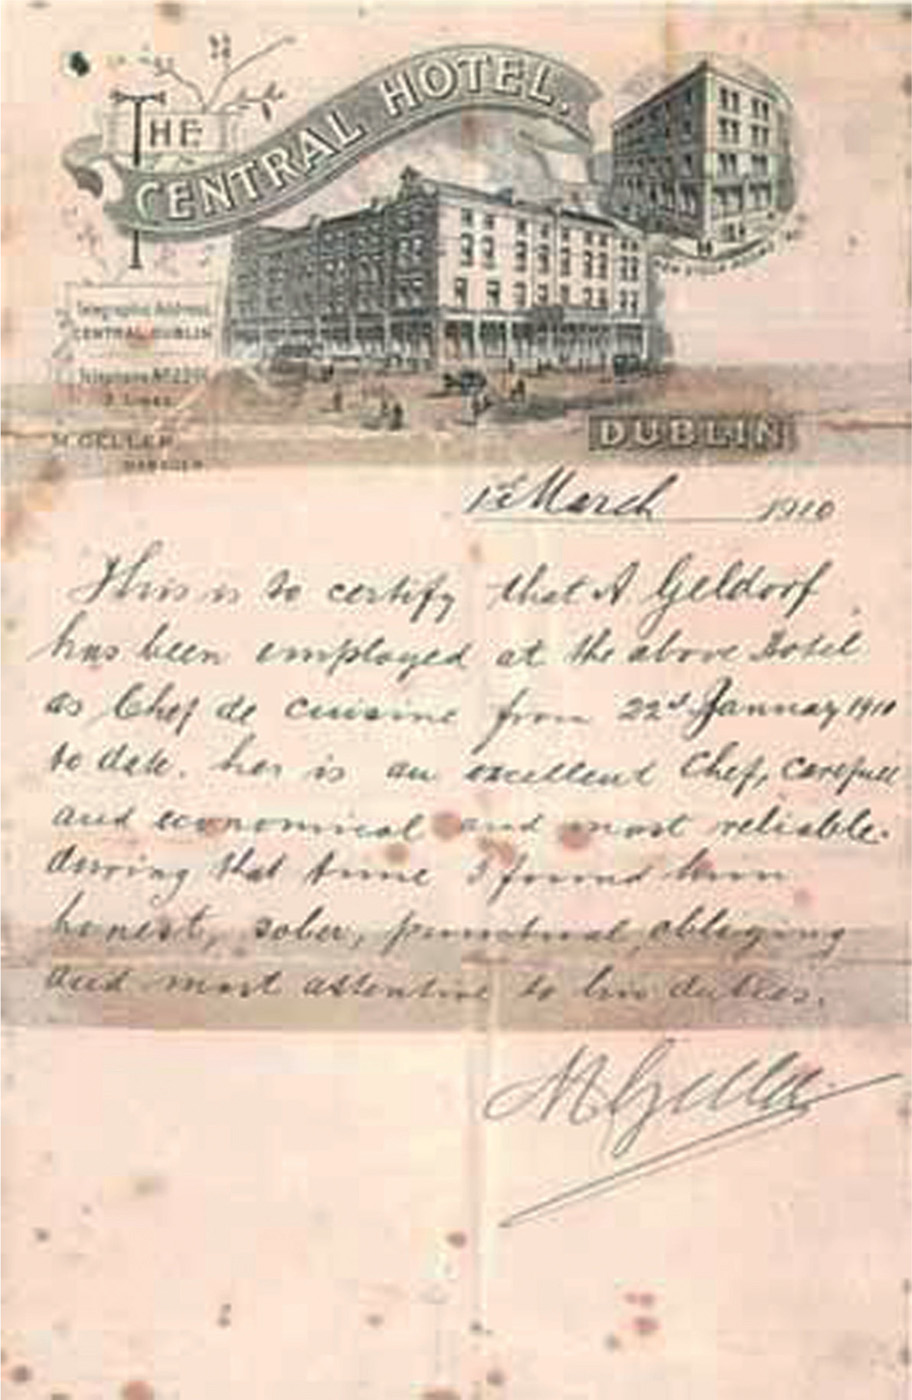 THE
CENTRAL HOTEL.
Telegraphic Address
CENTRAL DUBLIN
Telephone No
2 Lines
M. GELLER
MANAGER
DUBLIN
1st March 1910
This is to certify that A Geldorf
has been employed at the above Hotel
as Chef de cuisine from 22d January 1910
to date. he is an excellent Chef, carefull
and economical and most reliable.
during that time I found him
honest, sober, punctual, obliging
and most attentive to his duties.
M Geller